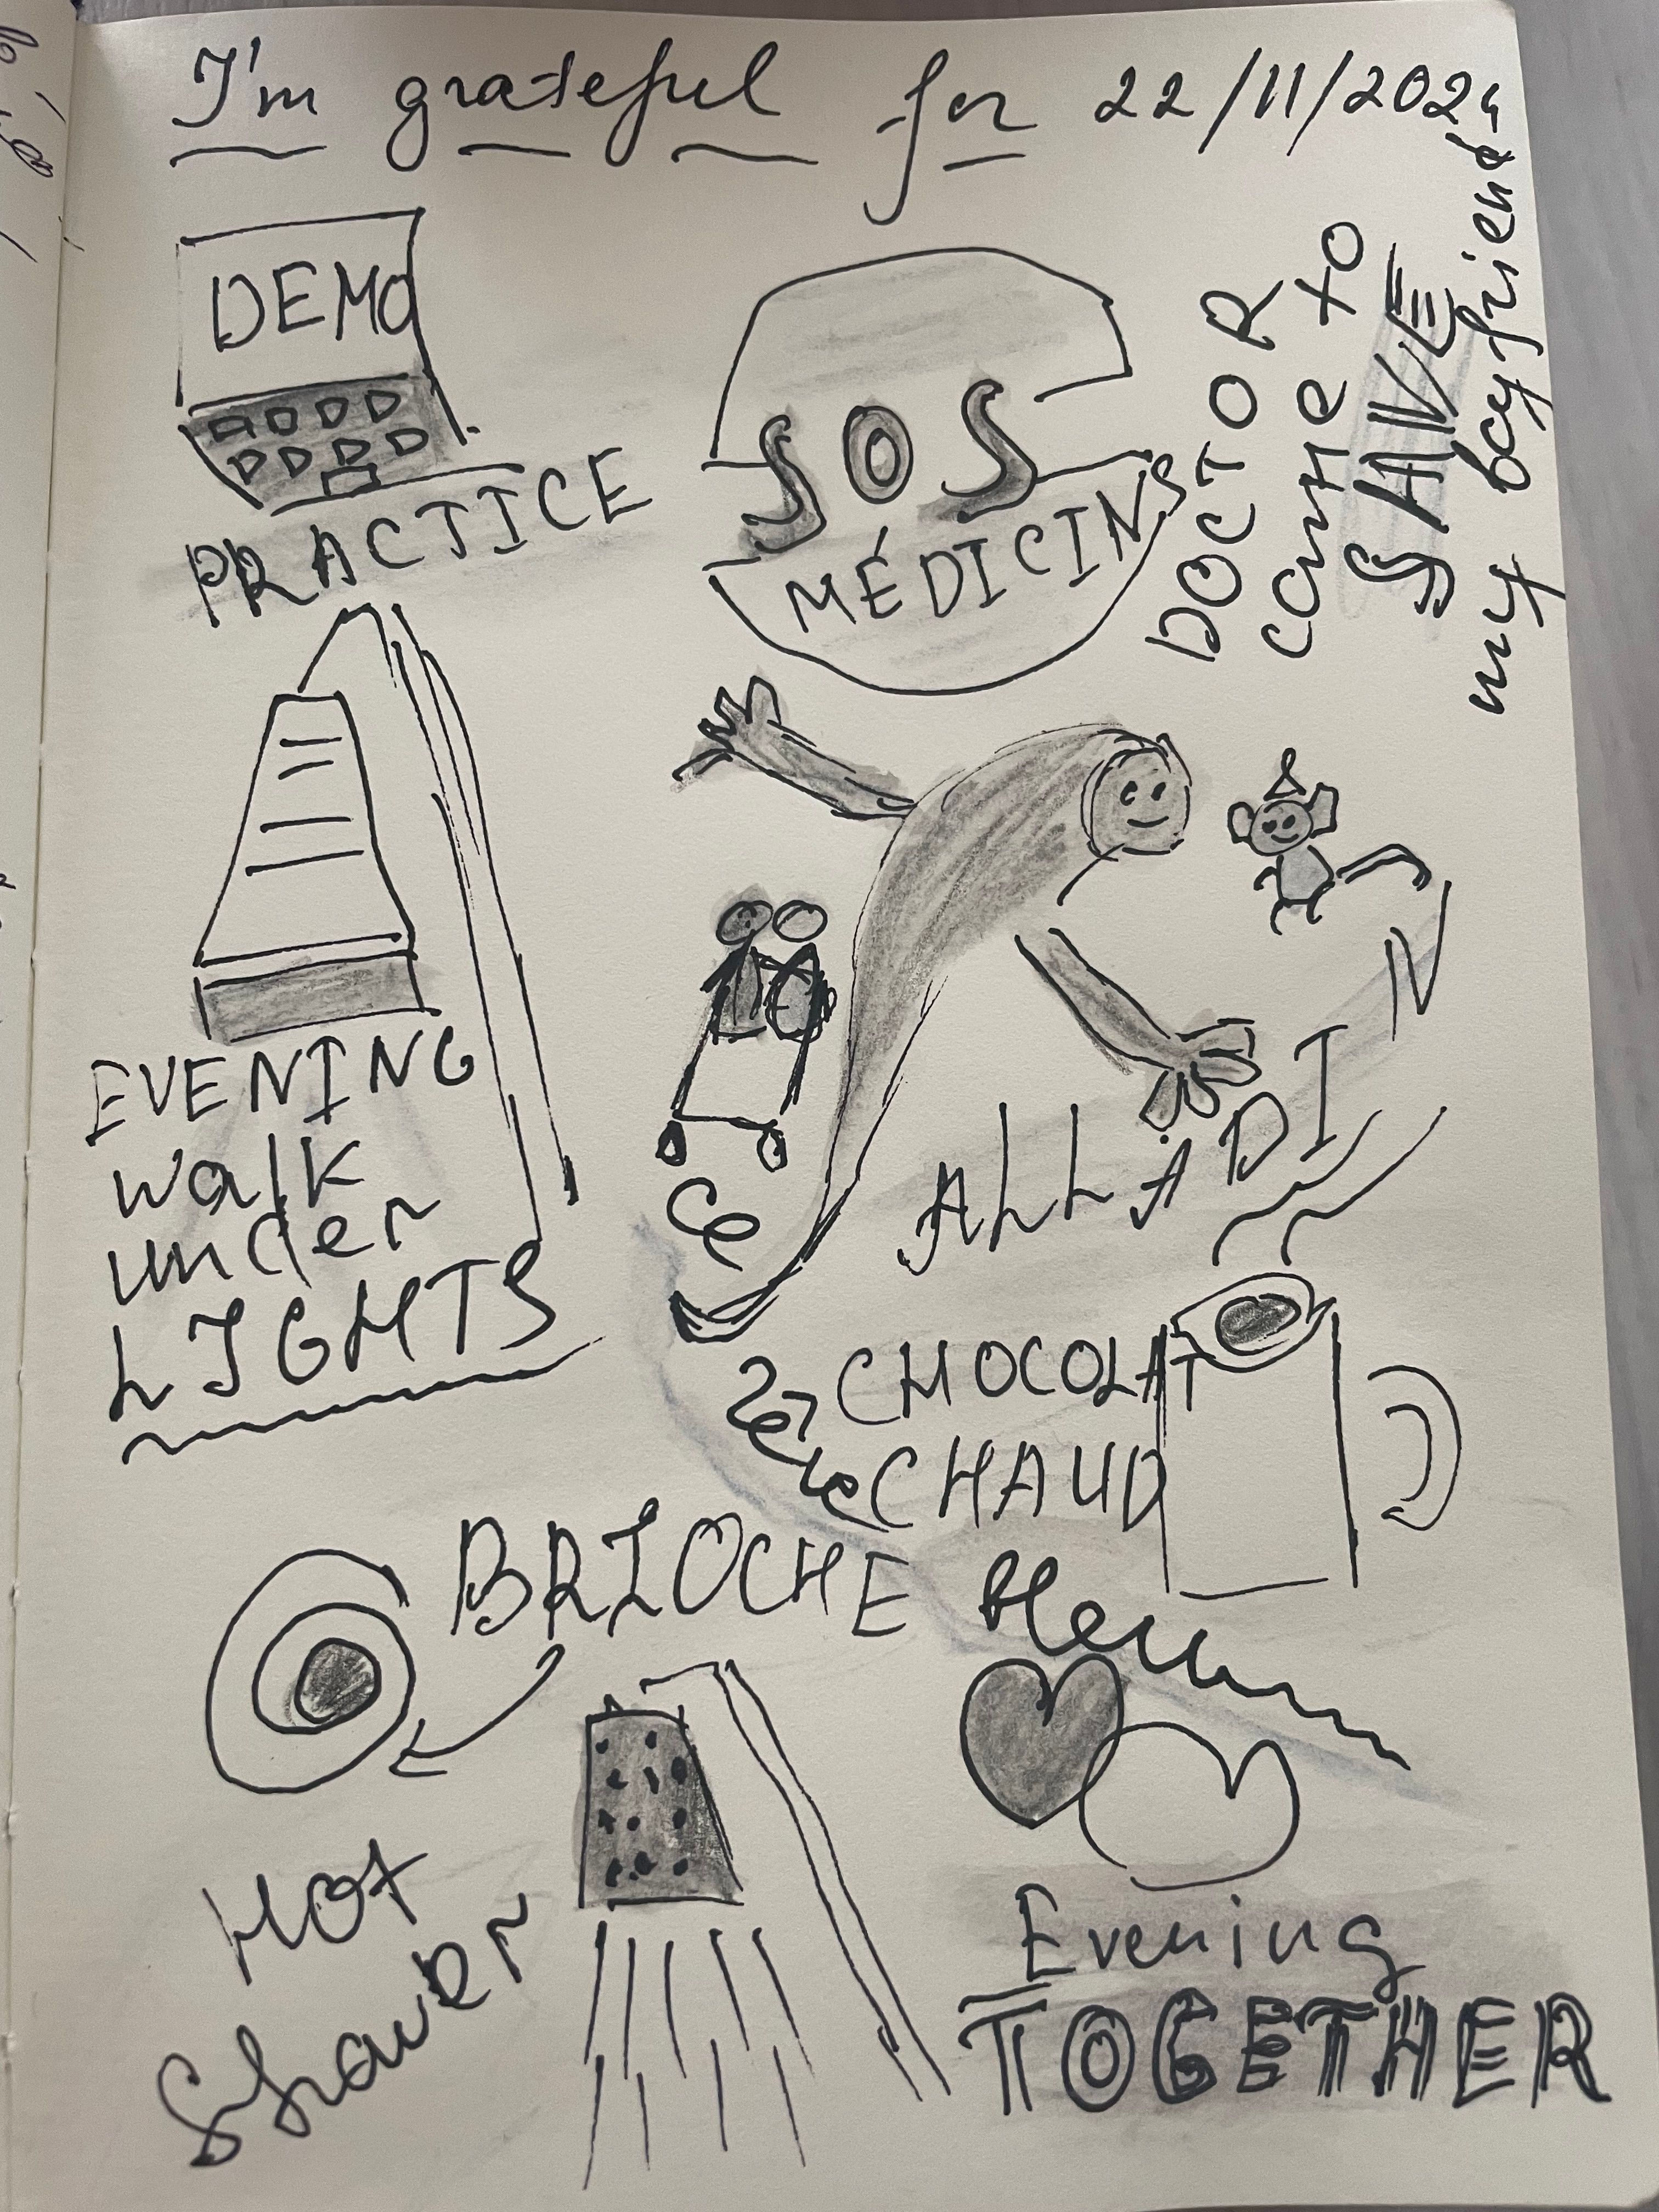 I'm grateful for 22/11/2024
DEMO
PRACTICE
SOS
MÉDICINS
DOCTOR
came to
SAVE
my boyfriend
EVENING
walk
under
LIGHTS
Ce
ALLADIN
CHOCOLAT
CHAUD
BRIOCHE
Hot
Shower
Evening
TOGETHER